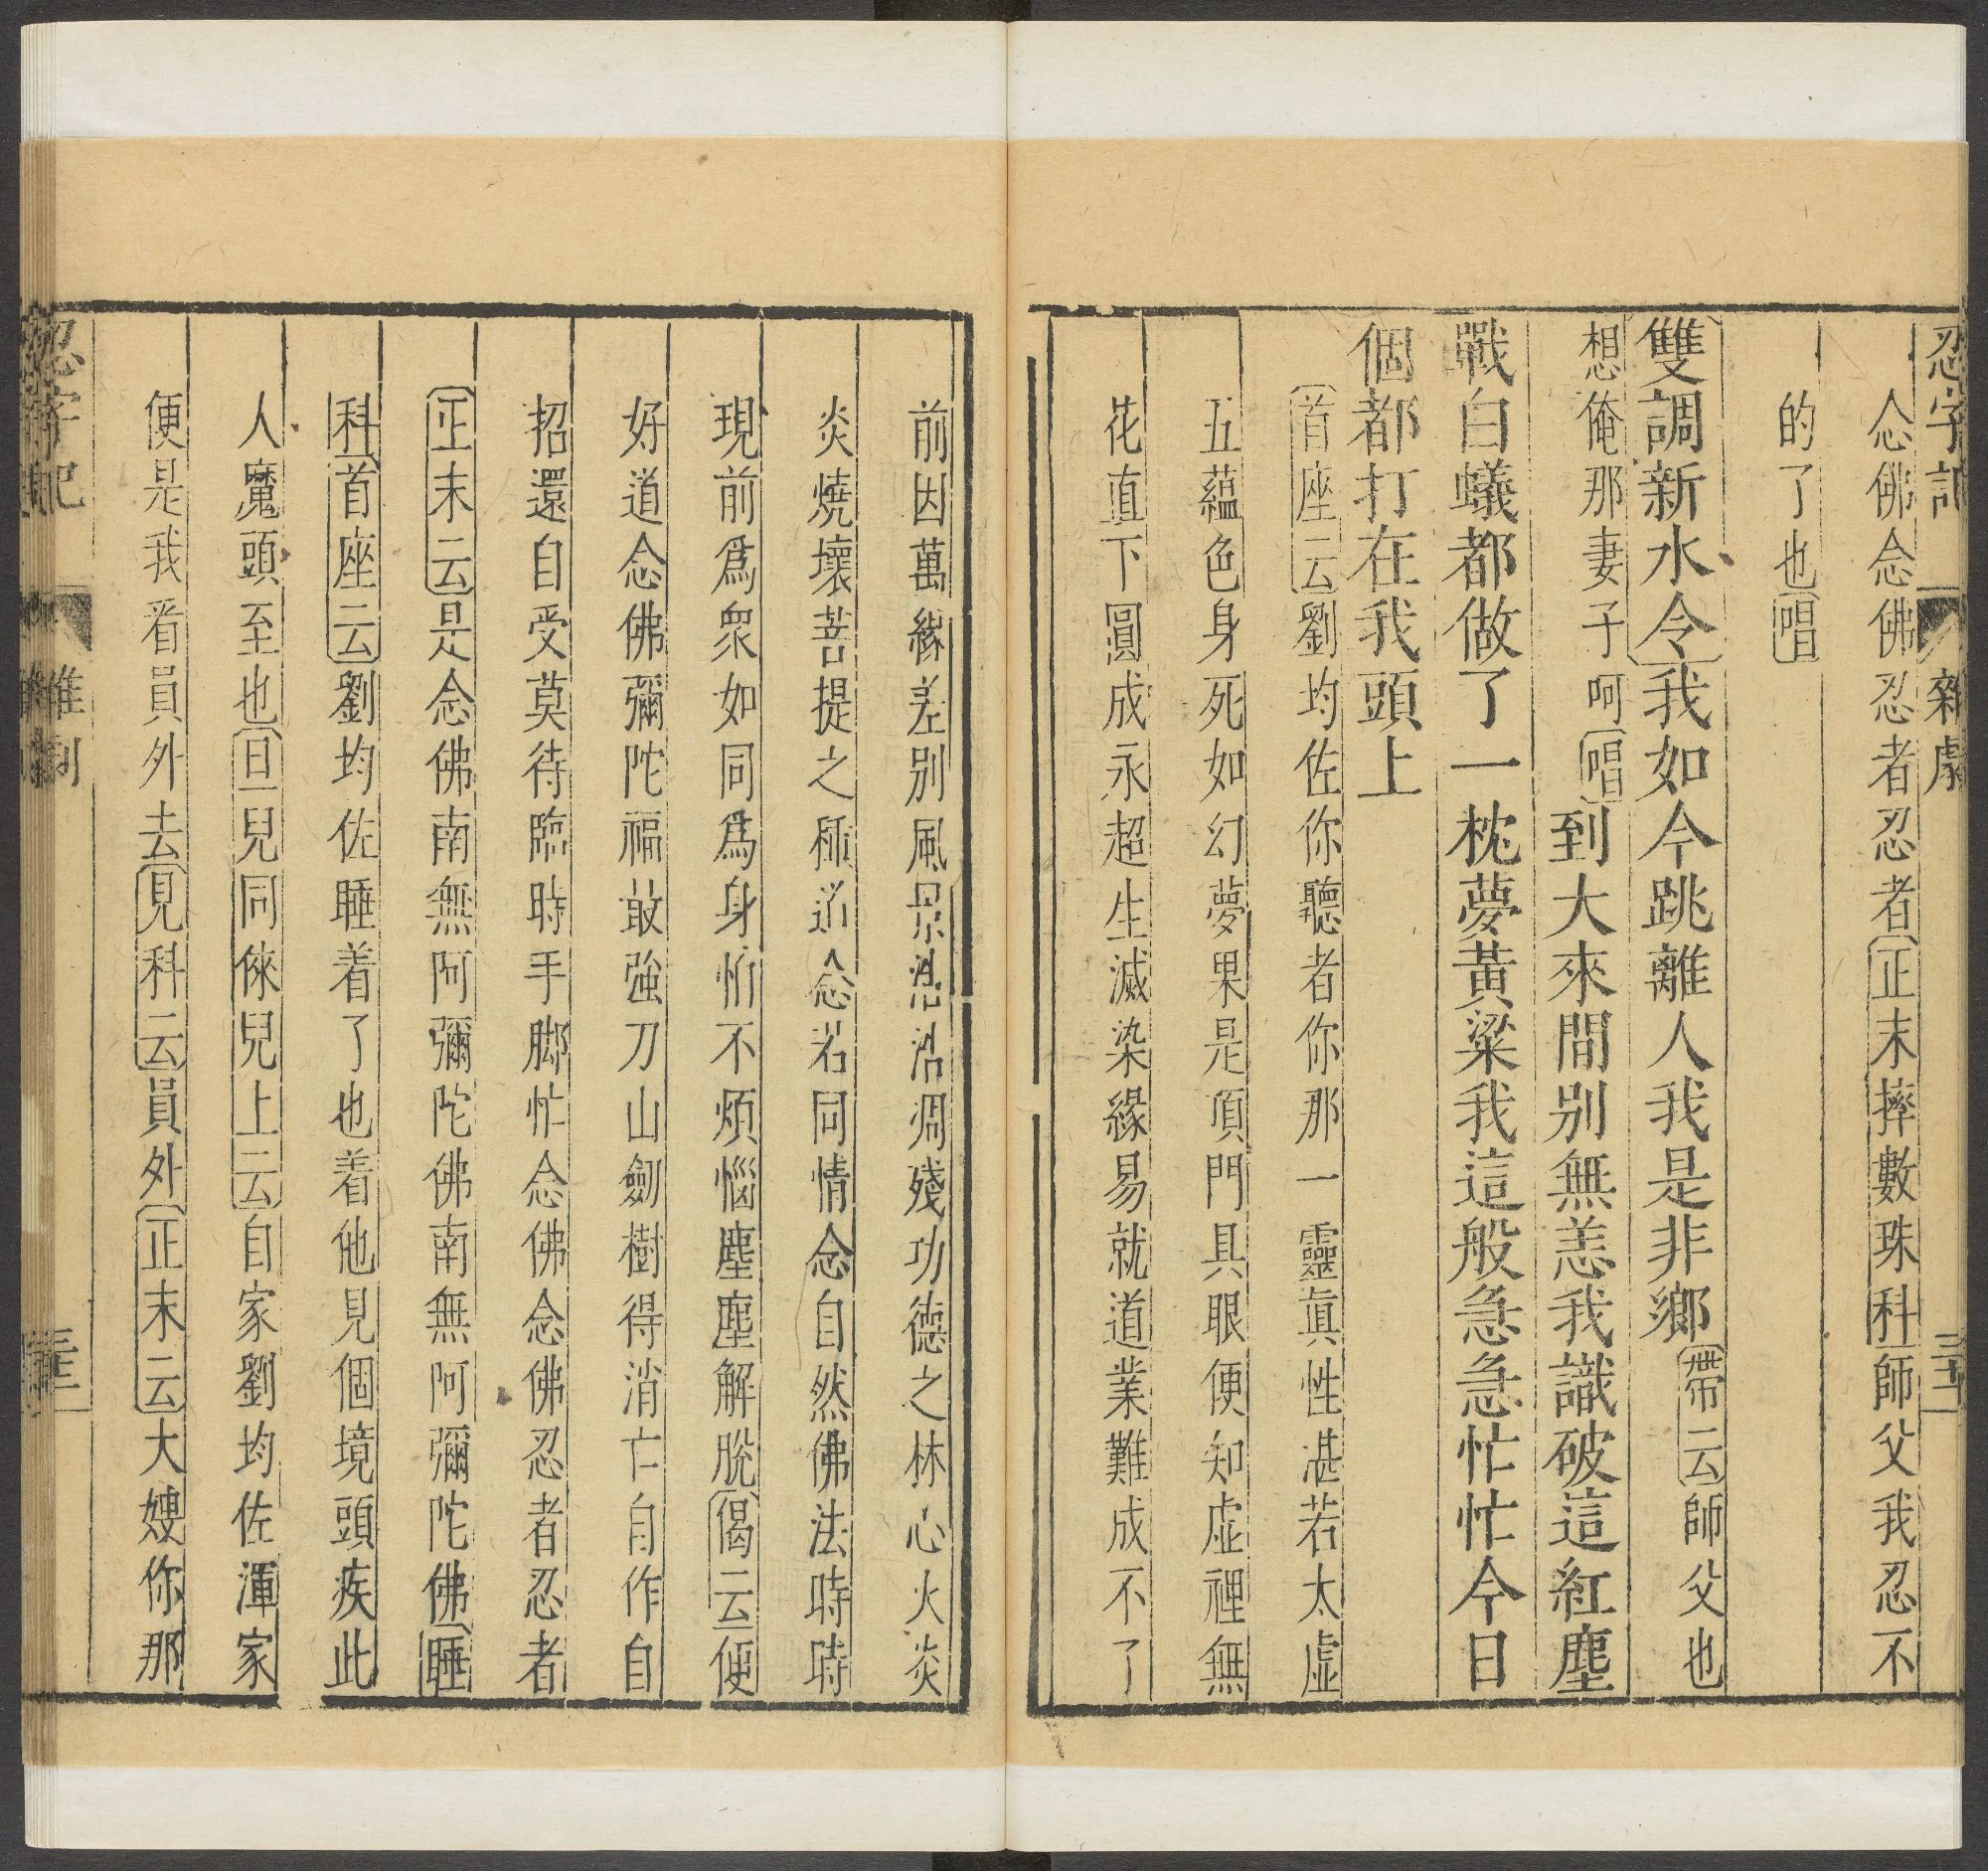 忍字記 雜劇 三十一
念佛念佛忍者忍者正末摔數珠科師父我忍不
的了也唱
雙調新水令我如今跳離人我是非鄉帶云師父也
想俺那妻子呵唱到大來間别無恙我識破這紅塵
戰白蟻都做了一枕夢黃粱我這般急急忙忙今日
個都打在我頭上
首座云劉均佐你聽者你那一靈眞性湛若太虛
五蘊色身死如幻夢果是頂門具眼便知虛裡無
花直下圓成永超生滅染緣易就道業難成不了
前因萬緣差别風景浩浩凋殘功德之林心火炎
炎燒壞菩提之種道念若同情念自然佛法時時
現前爲衆如同爲身怕不煩惱塵塵解脫偈云便
好道念佛彌陀福敢強刀山劒樹得消亡自作自
招還自受莫待臨時手脚忙念佛念佛忍者忍者
正末云是念佛南無阿彌陀佛南無阿彌陀佛睡
科首座云劉均佐睡着了也着他見個境頭疾此
人魔頭至也旦兒同倈兒上云自家劉均佐渾家
便是我看員外去見科云員外正末云大嫂你那
忍字記 雜劇